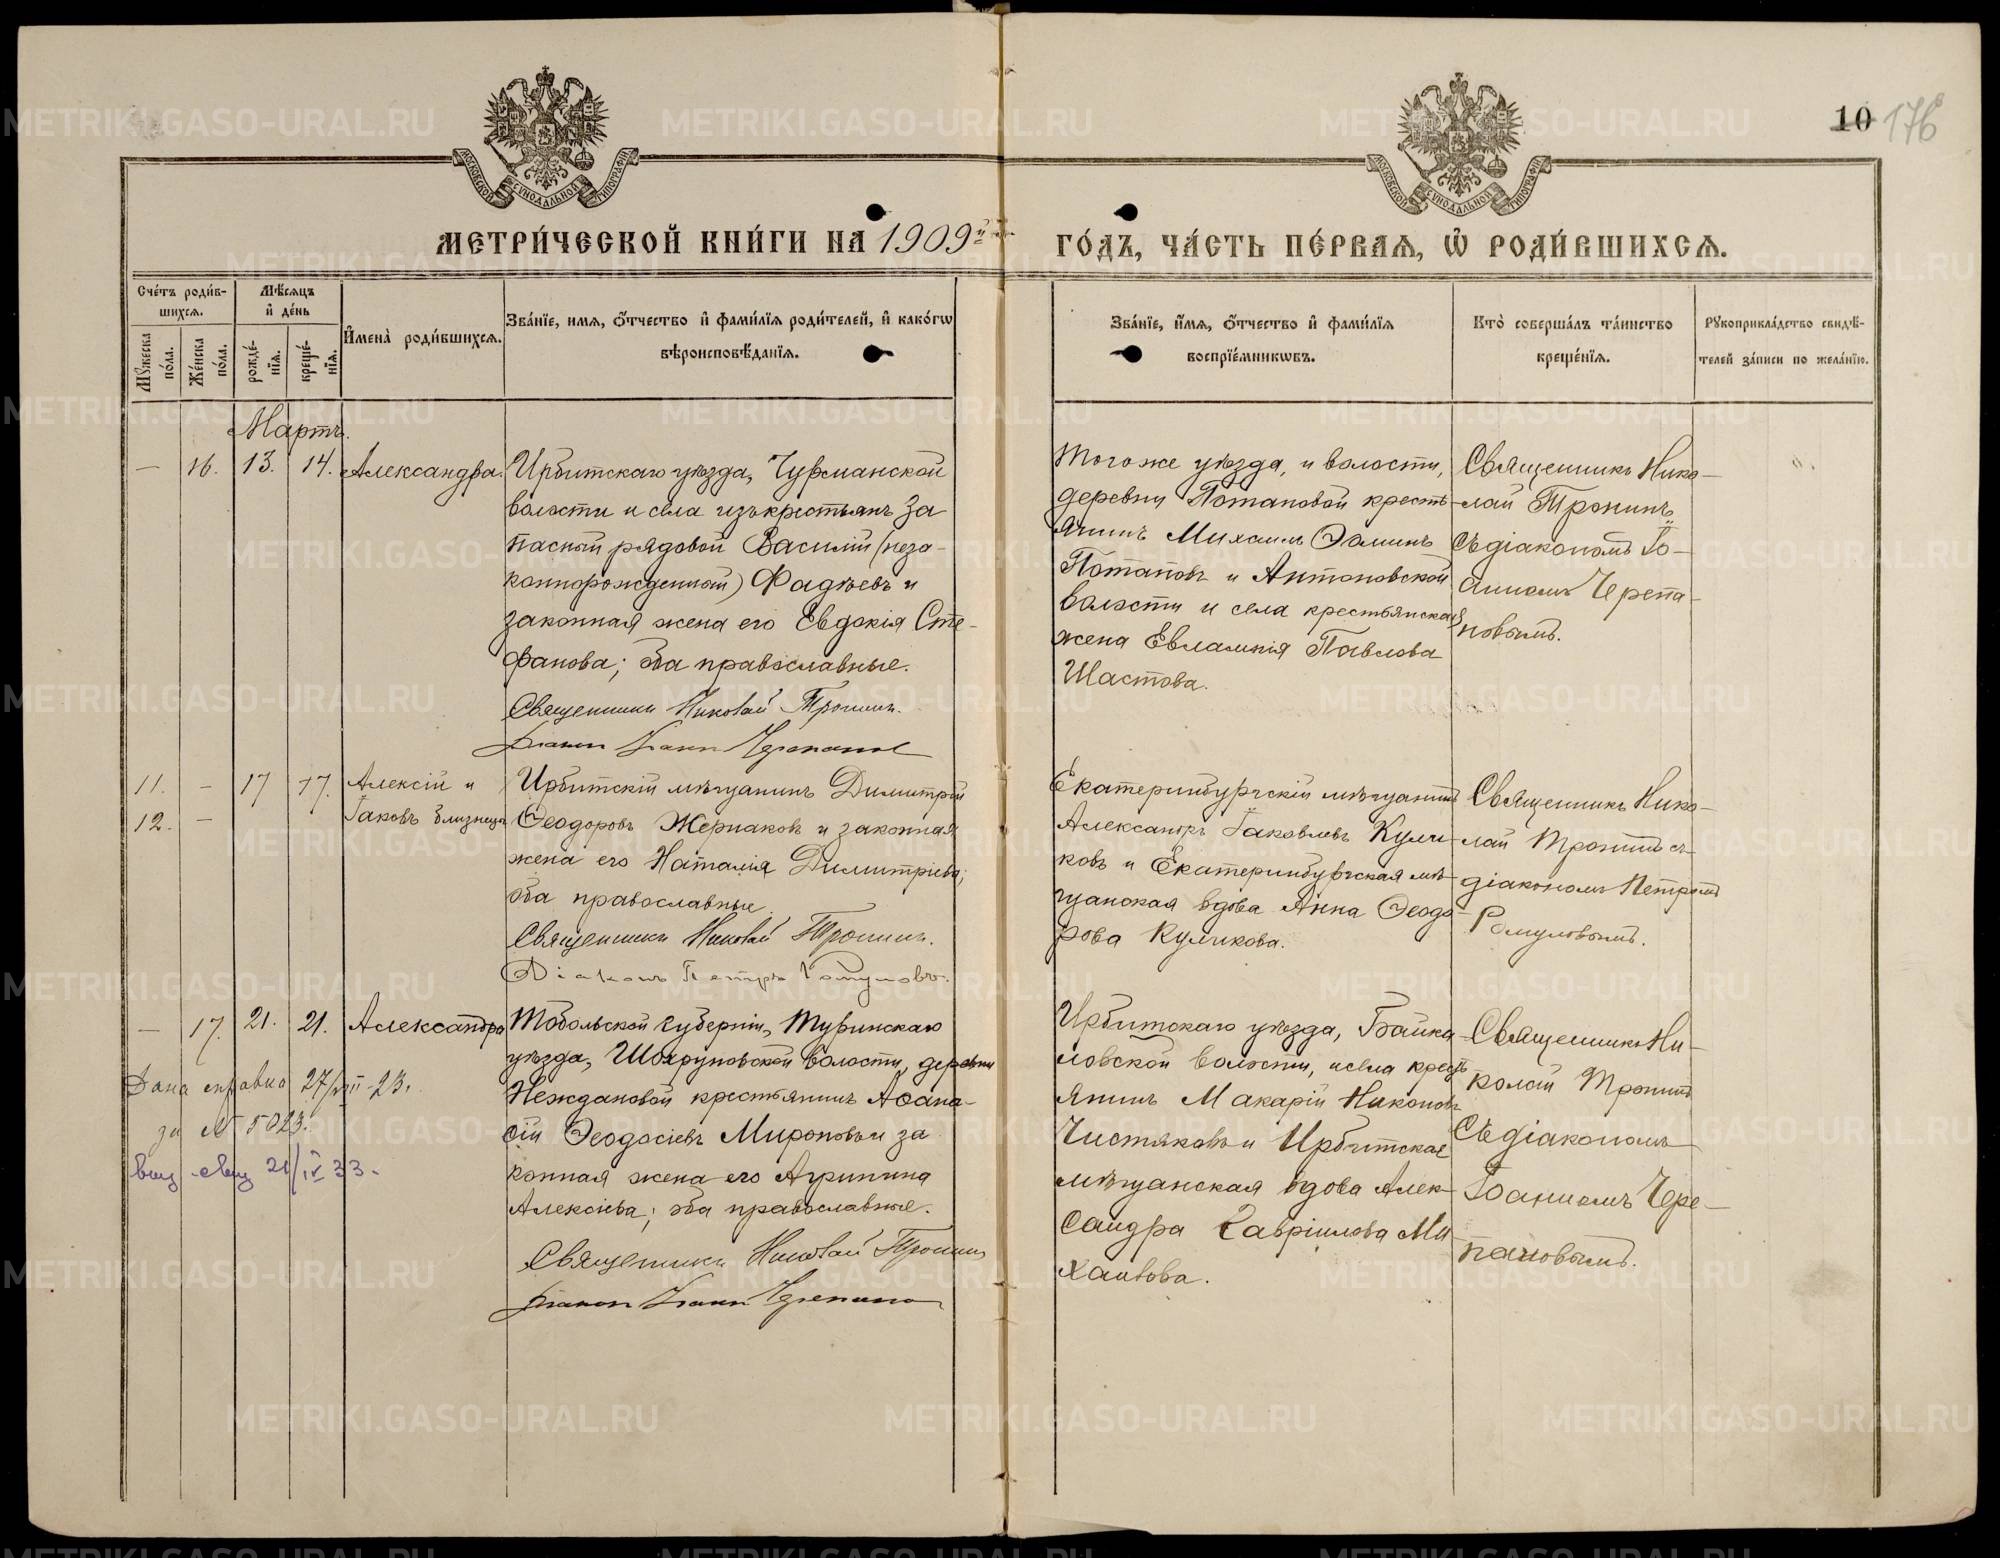 10 176
МОСКОВСКОЙ СѴНОДАЛЬНОЙ ТИПОГРАФІИ
МОСКОВСКОЙ СѴНОДАЛЬНОЙ ТИПОГРАФІИ
МЕТРИ́ЧЕСКОЙ КНИ́ГИ НА 1909й ГО́ДЪ, ЧА́СТЬ ПЕ́РВАѦ, Ѡ҆ РОДИ́ВШИХСѦ.
Сче́тъ роди́в-
шихсѧ.
Мꙋжеска по́ла.
Же́нска по́ла.
Мѣ́сѧцъ
и҆ де́нь
рожде́-
нїѧ.
креще́-
нїѧ.
И҆мена̀ роди́вшихсѧ.
Зва́нїе, имѧ, ѻ҆́тчество и҆ фами́лїѧ роди́телей, и҆ како́гѡ
вѣроисповѣ́данїѧ.
Зва́нїе, и҆́мѧ, ѻ҆́тчество и҆ фами́лїѧ
воспрїе́мникѡвъ.
Кто̀ соверша́лъ та́инство
креще́нїѧ.
Рꙋкоприкла́дство свидѣ́-
телей за́писи по жела́нїю.
Мартъ.
— 16. 13. 14. Александра.
Ирбитскаго уѣзда, Чурманской
волости и села изъ крестьянъ за
пасный рядовой Василій (неза-
коннорожденный) Фадѣевъ и
законная жена его Евдокія Сте-
фанова; оба православные.
Священникъ Николай Тронинъ.
Діаконъ Іоаннъ Черепановъ
Тогоже уѣзда, и волости,
деревни Потаповой кресть-
янинъ Михаилъ Ѳоминъ
Потаповъ и Антоновской
волости и села крестьянская
жена Евлампія Павлова
Шастова.
Священникъ Нико-
лай Тронинъ
съ діакономъ Іо-
анномъ Черепа-
новымъ.
11. — 17 17. Алексій и
12. — Іаковъ близнецы
Ирбитскій мѣщанинъ Димитрій
Ѳеодоровъ Жернаковъ и законная
жена его Наталія Димитріева;
оба православные.
Священникъ Николай Тронинъ.
Діаконъ Петръ Ромуловъ.
Екатеринбургскій мѣщанинъ
Александръ Іаковлевъ Кули-
ковъ и Екатеринбургская мѣ-
щанская вдова Анна Ѳеодо-
рова Куликова.
Священникъ Нико-
лай Тронинъ съ
діакономъ Петромъ
Ромуловымъ.
— 17. 21. 21. Александра
Дана справка 27/VIII-23.
за № 5023.
21/IV 33-
Тобольской губерніи, Туринскаго
уѣзда, Шухруповской волости, деревни
Неждановой крестьянинъ Аѳана-
сій Ѳеодосіевъ Мироновъ и за
конная жена его Агрипина
Алексіева; оба православные.
Священникъ Николай Тронинъ
Діаконъ Іоаннъ Черепановъ
Ирбитскаго уѣзда, Байка-
ловской волости, и села кресть
янинъ Макарій Никоновъ
Чистяковъ и Ирбитская
мѣщанская вдова Алек-
сандра Гавріилова Ми
хайлова.
Священникъ Ни-
колай Тронинъ
съ діакономъ
Іоанномъ Чере-
пановымъ.